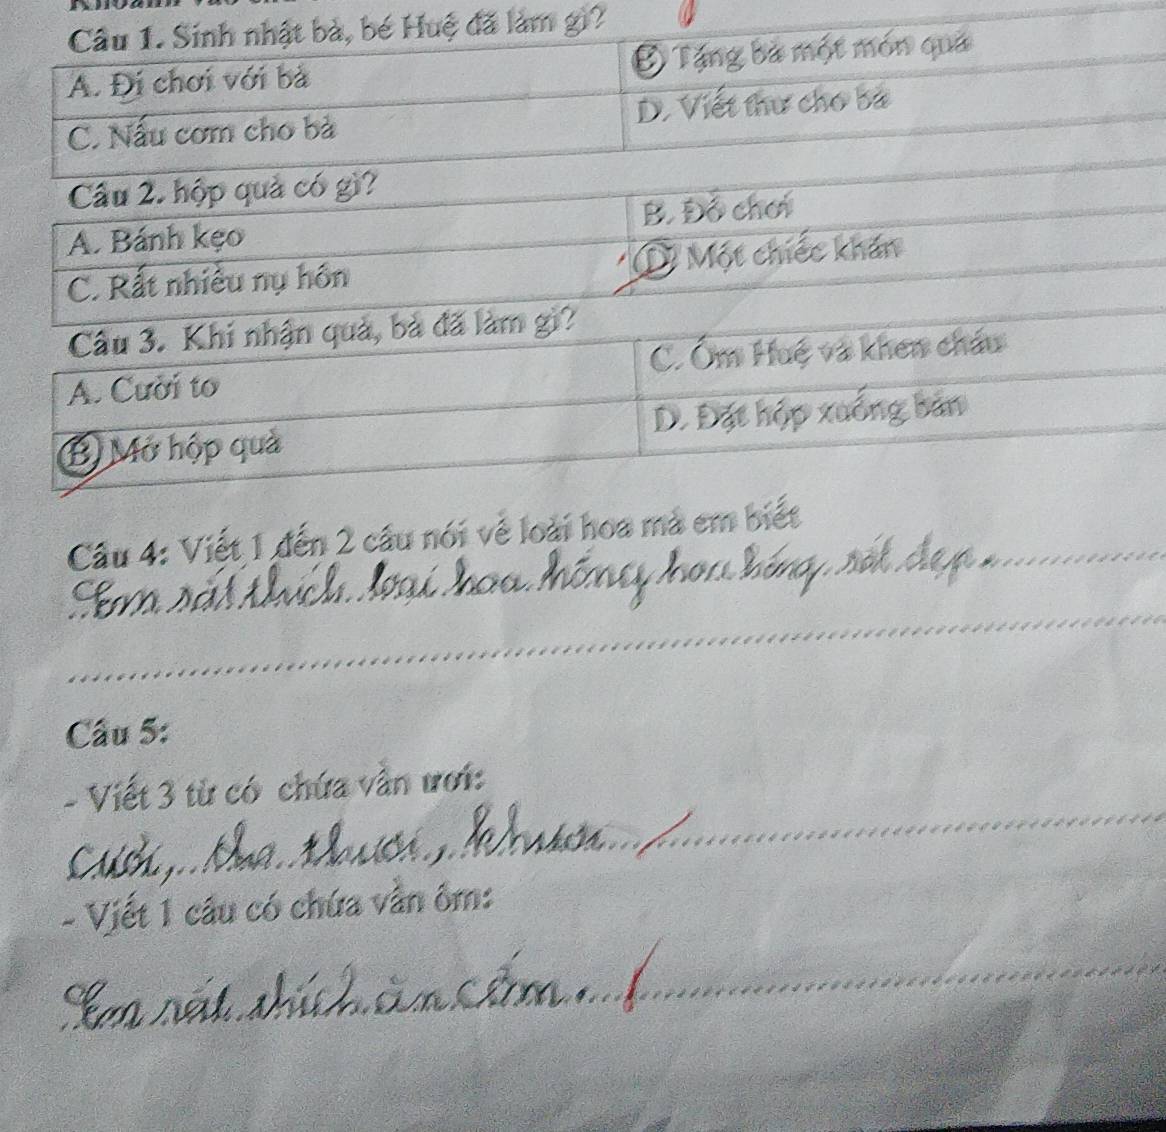 Câu 1. Sinh nhật bà, bé Huệ đã làm gì?
A. Đi chơi với bà B) Tặng bà một món quà
C. Nấu cơm cho bà D. Viết thư cho bà
Câu 2. hộp quà có gì?
A. Bánh kẹo B. Đồ chơi
C. Rất nhiều nụ hôn D) Một chiếc khăn
Câu 3. Khi nhận quà, bà đã làm gì?
A. Cười to C. Ôm Huệ và khen cháu
B) Mở hộp quà D. Đặt hộp xuống bàn
Câu 4: Viết 1 đến 2 câu nói về loài hoa mà em biết
Em rất thích loại hoa hồng, hoa hồng rất đẹp.
Câu 5:
- Viết 3 từ có chứa vần ươi:
cười, tha
- Viết 1 câu có chứa vần ôm:
Em rất thích ăn